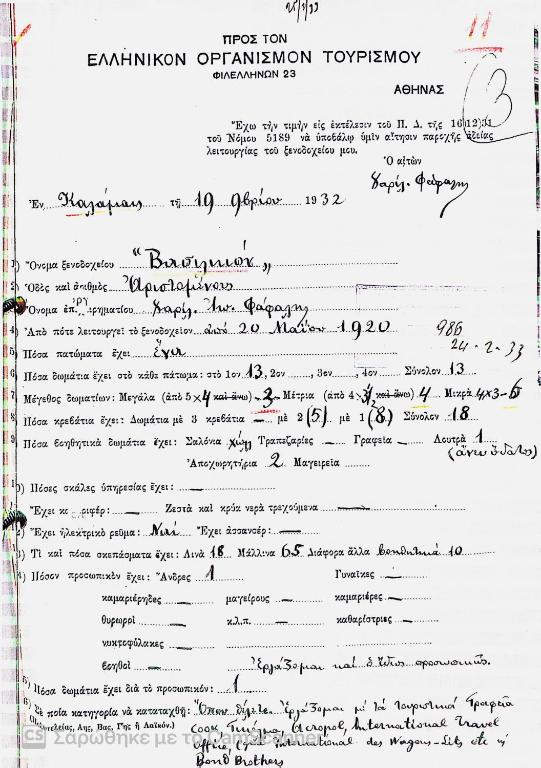 25/2/33
11
3
ΠΡΟΣ ΤΟΝ
ΕΛΛΗΝΙΚΟΝ ΟΡΓΑΝΙΣΜΟΝ ΤΟΥΡΙΣΜΟΥ
ΦΙΛΕΛΛΗΝΩΝ 23
ΑΘΗΝΑΣ
Ἔχω τὴν τιμὴν εἰς ἐκτέλεσιν τοῦ Π. Δ. τῆς 16)12)31
τοῦ Νόμου 5189 νὰ ὑποβάλω ὑμῖν αἴτησιν παροχῆς ἀδείας
λειτουργίας τοῦ ξενοδοχείου μου.
Ὁ αἰτῶν
Χαρίλ. Φάφαλης
Ἐν Καλάμαις τῇ 19 9βρίου 1932
1) Ὄνομα ξενοδοχείου "Βασιλικόν"
2) Ὁδὸς καὶ ἀριθμὸς Ἀριστομένους
Ὄνομα ἐπιχειρηματίου Χαρίλ. Ἀπ. Φάφαλης
4) Ἀπὸ πότε λειτουργεῖ τὸ ξενοδοχεῖον ἀπὸ 20 Μαΐου 1920
986
24-2-33
5) Πόσα πατώματα ἔχει Ἕνα
6) Πόσα δωμάτια ἔχει στὸ κάθε πάτωμα: στὸ 1ον 13, 2ον, 3ον, 4ον Σύνολον 13
7) Μέγεθος δωματίων: Μεγάλα (ἀπὸ 5 × 4 καὶ ἄνω) - 3 - Μέτρια (ἀπὸ 4 × καὶ ἄνω) 4 Μικρὰ 4×3-6
8) Πόσα κρεβάτια ἔχει: Δωμάτια μὲ 3 κρεβάτια — μὲ 2 (5) μὲ 1 (8) Σύνολον 18
9) Πόσα βοηθητικὰ δωμάτια ἔχει: Σαλόνια χώλλ Τραπεζαρίες — Γραφεῖα — Λουτρὰ 1
(ἄνευ ὕδατος)
Ἀποχωρητήρια 2 Μαγειρεῖα
10) Πόσες σκάλες ὑπηρεσίας ἔχει: —
Ἔχει κ ριφέρ: — Ζεστὰ καὶ κρύα νερὰ τρεχούμενα —
2) Ἔχει ἠλεκτρικὸ ρεῦμα: Ναί Ἔχει ἀσσανσέρ: —
3) Τί καὶ πόσα σκεπάσματα ἔχει: Λινὰ 18 Μάλλινα 65 Διάφορα ἄλλα βοηθητικά 10
4) Πόσον προσωπικὸν ἔχει: Ἄνδρες 1 Γυναῖκες —
καμαριέρηδες — μαγείρους — καμαριέρες —
θυρωροὶ — κ.λ.π. — καθαρίστριες —
νυκτοφύλακες —
βοηθοὶ — Ἐργάζομαι καὶ ὁ ἴδιος προσωπικῶς.
5) Πόσα δωμάτια ἔχει διὰ τὸ προσωπικόν: 1
6) Σὲ ποία κατηγορία νὰ καταταχθῇ: Ὅπου θέλετε. Ἐργάζομαι μὲ τὰ τουριστικὰ Γραφεῖα
(Πολυτελείας, Αης, Βας, Γης ἢ Λαϊκόν.)
Cook, Γκιόλμα, Aeropol, International Travel
office, International des Wagons-Lits etc
Bond Brothers
CS Σαρώθηκε με το CamScanner